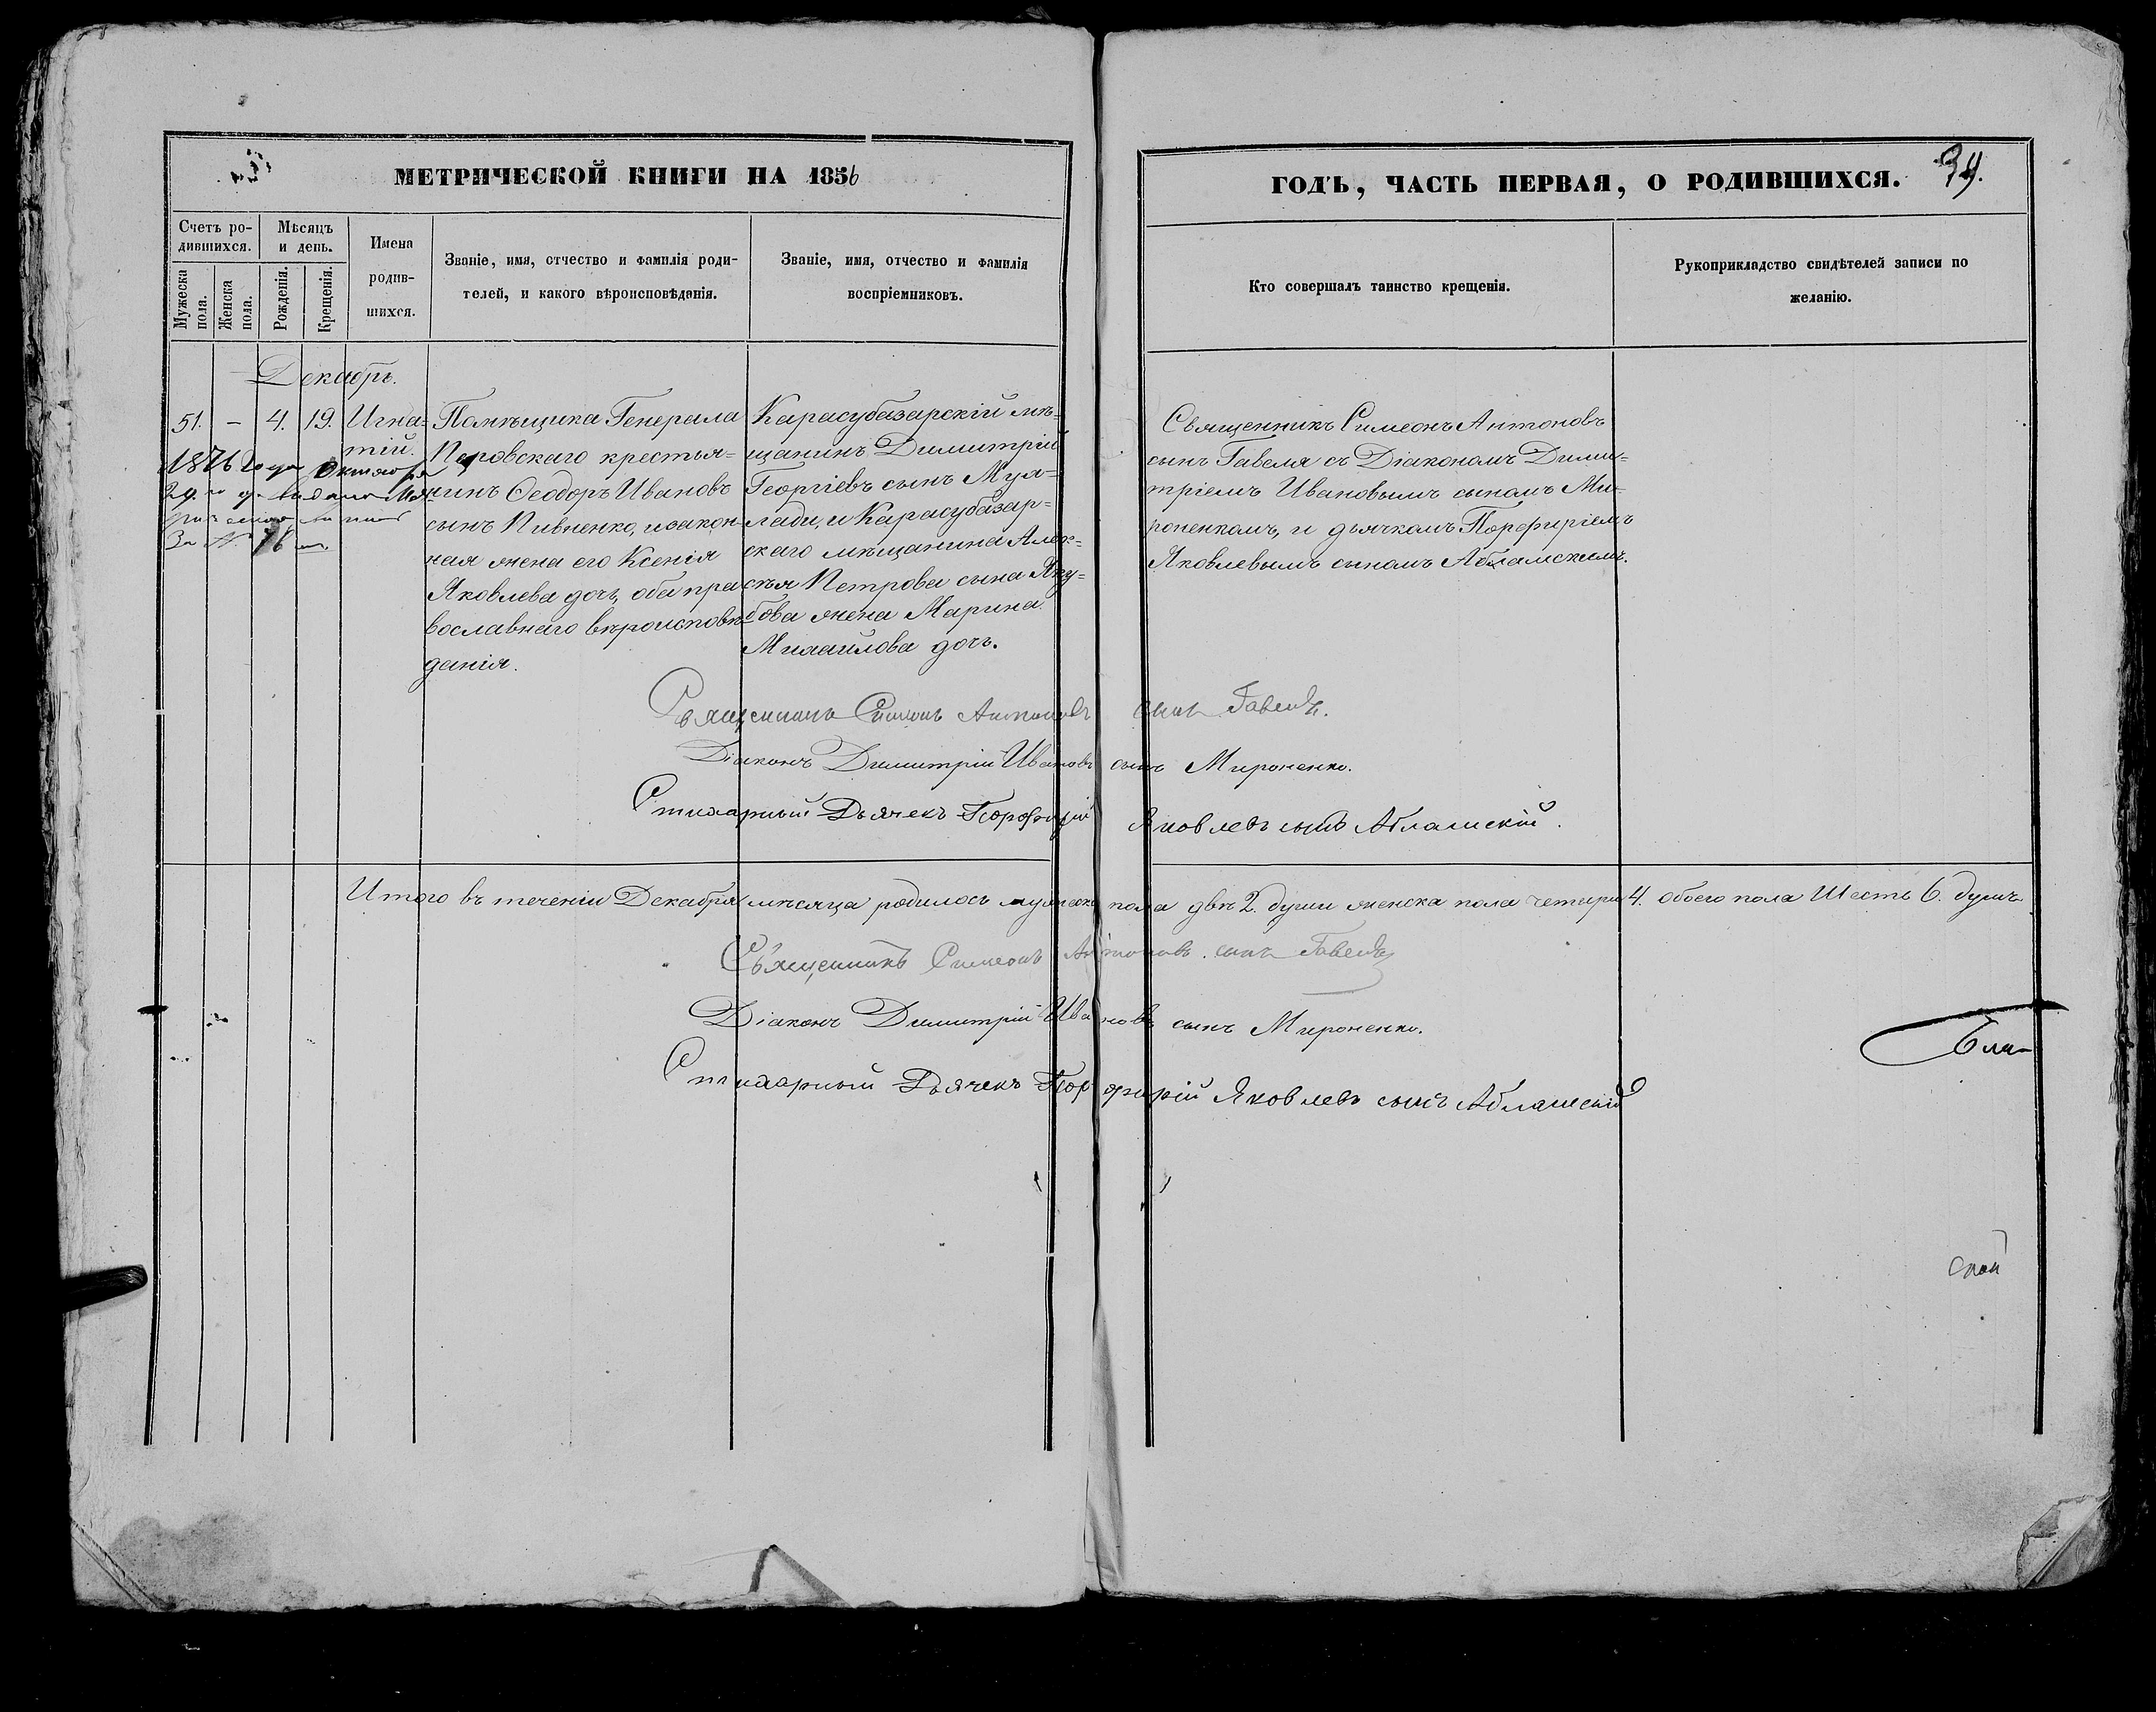 МЕТРИЧЕСКОЙ КНИГИ НА 1856
ГОДЪ, ЧАСТЬ ПЕРВАЯ, О РОДИВШИХСЯ.
34.
Счетъ ро-
дившихся.
Мужеска пола.
Женска пола.
Мѣсяцъ
и день.
Рожденія.
Крещенія.
Имена
родив-
шихся.
Званіе, имя, отчество и фамилія роди-
телей, и какого вѣроисповѣданія.
Званіе, имя, отчество и фамилія
воспріемниковъ.
Кто совершалъ таинство крещенія.
Рукоприкладство свидѣтелей записи по
желанію.
Декабрь.
51. – 4. 19. Игна=
тій.
1876 года Октября
выдано
За № 76
Помѣщика Генерала
Перовскаго крестья=
нинъ Ѳеодоръ Ивановъ
сынъ Пивненко, и закон-
ная жена его Ксенія
Яковлева дочь, оба пра
вославнаго вѣроисповѣ=
данія.
Карасубазарскій мѣ=
щанинъ Димитрій
Георгіевъ сынъ Мул=
лади, и Карасубазар=
скаго мѣщанина Алек=
сѣя Петрова сына Яку=
бова жена Марина
Михайлова дочь.
Священникъ Симеонъ Антоновъ
сынъ Гавеля съ Діакономъ Дими=
тріемъ Ивановымъ сыномъ Ми-
роненкомъ, и дьячкомъ Порфиріемъ
Яковлевымъ сыномъ Абламскимъ.
Священникъ Симеонъ Антоновъ сынъ Гавеля.
Діаконъ Димитрій Ивановъ сынъ Мироненко.
Стихарный Дьячекъ Порфирій Яковлевъ сынъ Абламскій.
Итого въ теченіи Декабря мѣсяца родилось мужеска пола двѣ 2. души женска пола четыри 4. обоего пола Шесть 6. душъ
Священникъ Симеонъ Антоновъ сынъ Гавеля
Діаконъ Димитрій Ивановъ сынъ Мироненко.
Стихарный Дьячекъ Порфирій Яковлевъ сынъ Абламскій